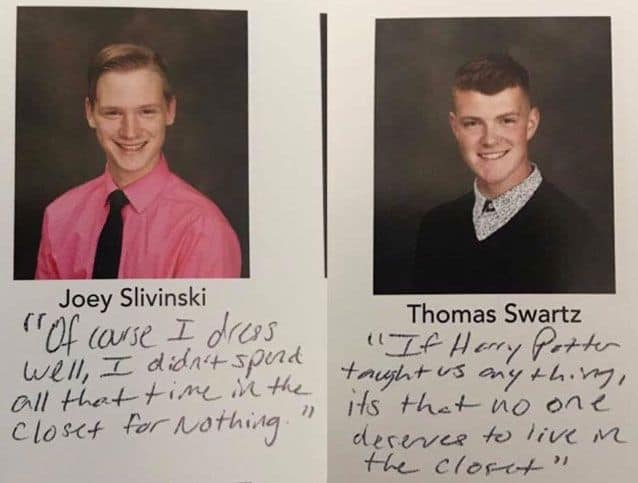 Joey Slivinski
"Of course I dress
well, I didn't spend
all that time in the
closet for Nothing."
Thomas Swartz
"If Harry Potter
taught us anything,
its that no one
deserves to live in
the closet"